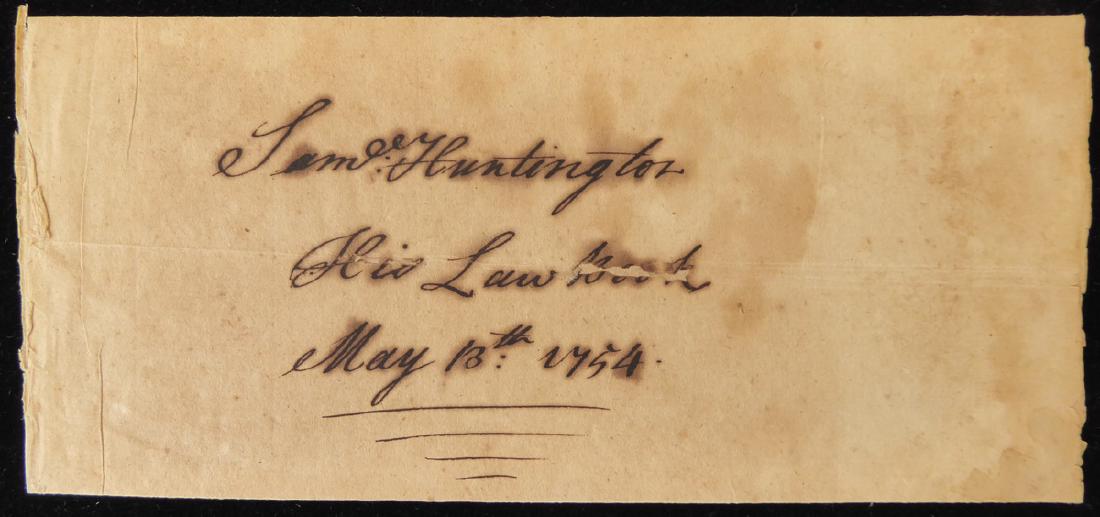 Saml. Huntington
His Law Book
May 13th. 1754.